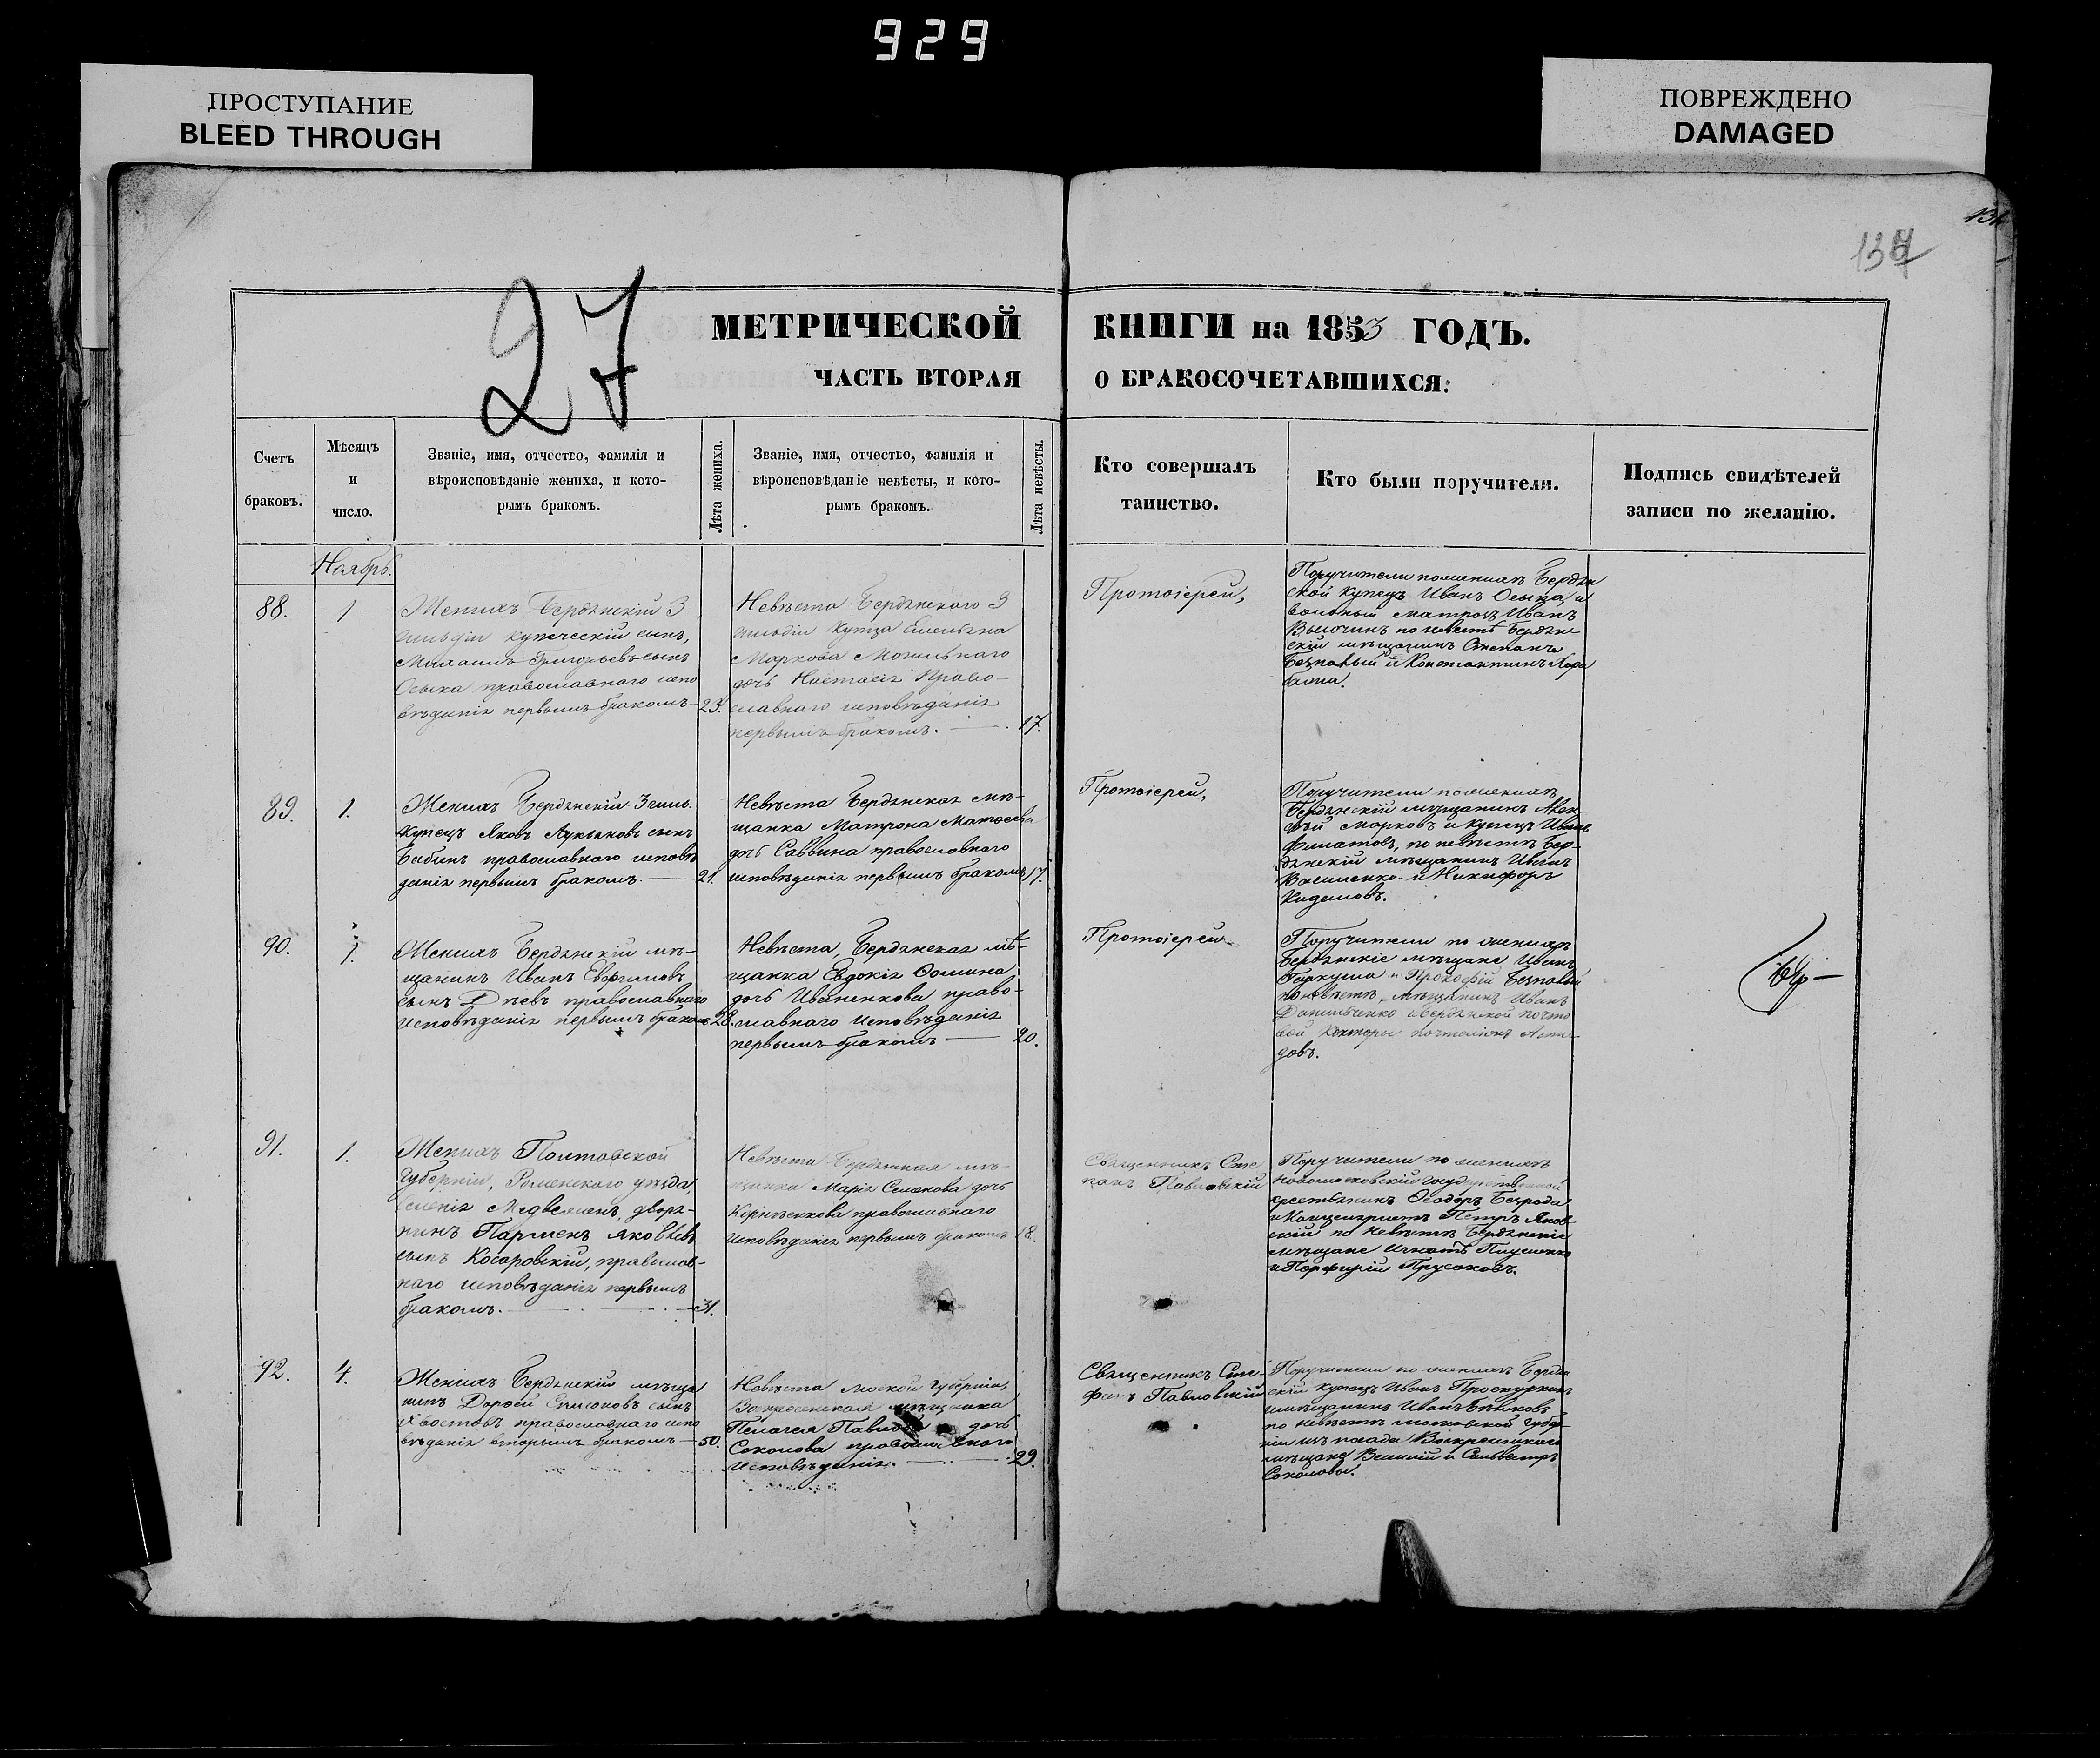 929
ПРОСТУПАНИЕ
BLEED THROUGH
ПОВРЕЖДЕНО
DAMAGED
137
27
МЕТРИЧЕСКОЙ КНИГИ на 1853 ГОДЪ.
ЧАСТЬ ВТОРАЯ О БРАКОСОЧЕТАВШИХСЯ:
Счетъ
браковъ.
Мѣсяцъ
и
число.
Званіе, имя, отчество, фамилія и
вѣроисповѣданіе жениха, и кото-
рымъ бракомъ.
Лѣта жениха.
Званіе, имя, отчество, фамилія и
вѣроисповѣданіе невѣсты, и кото-
рымъ бракомъ.
Лѣта невѣсты.
Кто совершалъ
таинство.
Кто были поручители.
Подпись свидѣтелей
записи по желанію.
Ноябрь.
88.
1
Женихъ Бердянскій 3
гильдіи купеческій сынъ,
Григорьевъ сынъ
Осыка православнаго испо
вѣданія первымъ бракомъ
23.
Невѣста Бердянскаго 3
гильдіи купца Емельяна
Маркова Могильнаго
дочь Настасія Право-
славнаго исповѣданія
первымъ бракомъ.
17.
Протоіерей,
Поручители по женихѣ Бердян
ской купецъ Иванъ Осыка, и
матросъ Иванъ
по невѣстѣ Бердян-
скій мѣщанинъ Степанъ
и Константинъ
89.
1.
Женихъ Бердянскій 3 гиль.
купецъ Яковъ Лукьяновъ сынъ
Бабинъ православнаго исповѣ
данія первымъ бракомъ.
21.
Невѣста Бердянская мѣ-
щанка Матрона Матвеева
дочь Саввина православнаго
исповѣданія первымъ бракомъ
17.
Протоіерей,
Поручители по женихѣ
Бердянскій мѣщанинъ
Марковъ и купецъ Иванъ
Филатовъ, по невѣстѣ Бер-
дянскій мѣщанинъ Иванъ
Василенко и Никифоръ
90.
1.
Женихъ Бердянскій мѣ-
щанинъ Иванъ Евфимовъ
сынъ православнаго
исповѣданія первымъ бракомъ
28.
Невѣста, Бердянская мѣ-
щанка Евдокія Ѳомина
дочь Иваненкова право-
славнаго исповѣданія
первымъ бракомъ
20.
Протоіерей
Поручители по женихѣ
Бердянскіе мѣщане Иванъ
Гаркуша и Прокофій
по невѣстѣ, мѣщанинъ Иванъ
Данильченко и Бердянской почто
вой конторы почталіонъ
91.
1.
Женихъ Полтавской
Губерніи, Роменского уѣзда,
дворя-
нинъ Парменъ Яковлевъ
сынъ Косаровскій, православ-
наго исповѣданія первымъ
бракомъ.
31.
Невѣста Бердянская мѣ-
щанка Марія Семенова дочь
Корнѣенкова православнаго
исповѣданія первымъ бракомъ
18.
Священникъ Сте
фанъ Павловскій
Поручители по женихѣ
Новомосковскій государственной
крестьянинъ Ѳеодоръ Безрода
и Канцеляристъ Петръ Янов-
скій по невѣстѣ Бердянскіе
мѣщане Игнатъ
и Порфирій Прусаковъ.
92.
4.
Женихъ Бердянскій мѣща
нинъ Дорофей сынъ
Хвостовъ, православнаго испо
вѣданія вторымъ бракомъ
50.
Невѣста Моской Губерніи,
Воскресенская мѣщанка
Пелагея дочь
Соколова православнаго
исповѣданія.
29.
Священникъ Сте
фанъ Павловскій
Поручители по женихѣ Бердян
скій купецъ Иванъ Проскурнинъ
и мѣщанинъ Иванъ
по невѣстѣ Московской Губер-
ніи изъ посада Воскресенскаго
мѣщане Василій и Сильвестръ
Соколовы.